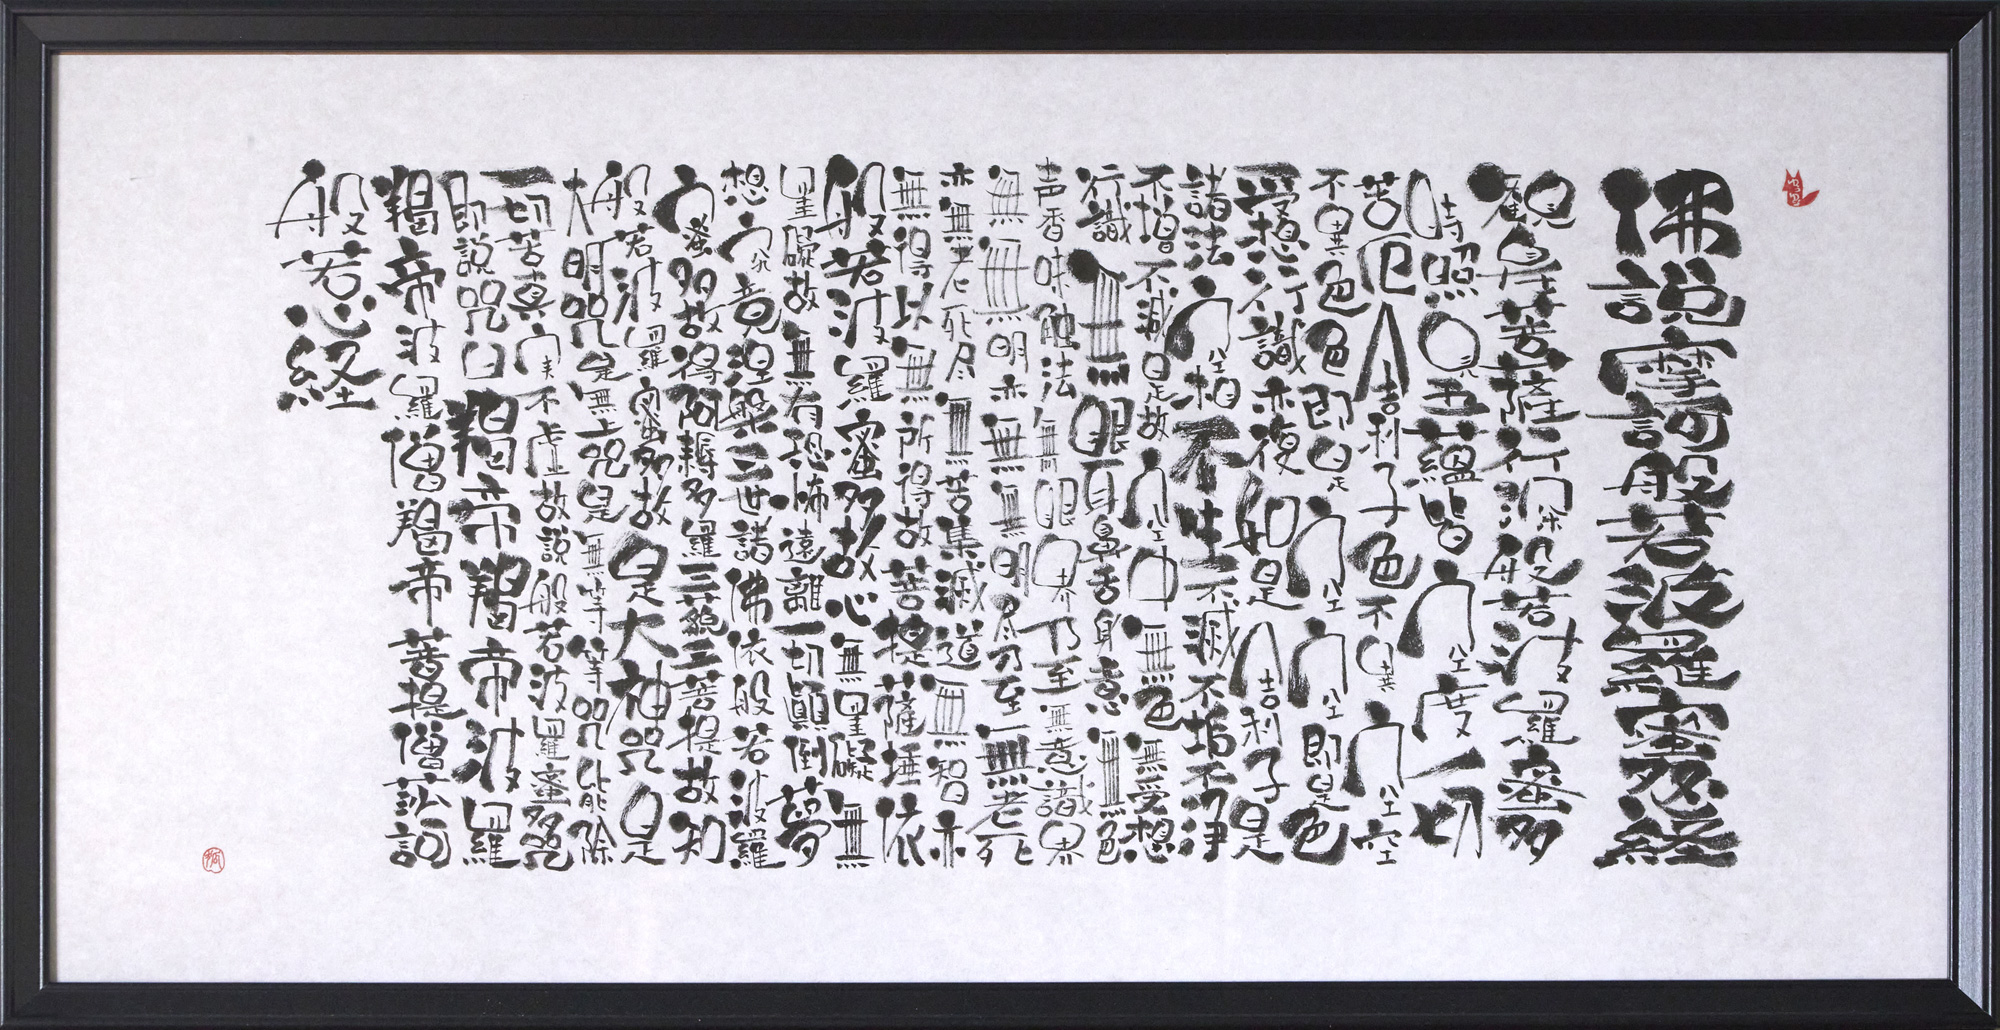 佛説摩訶般若波羅蜜多経
観自在菩薩行深般若波羅蜜多
時照見五蘊皆空度一切
苦厄舎利子色不異空空
不異色色即是空空即是色
受想行識亦復如是舎利子是
諸法空相不生不滅不垢不浄
不増不減是故空中無色無受想
行識無眼耳鼻舌身意無色
声香味触法無眼界乃至無意識界
無無明亦無無明尽乃至無老死
亦無老死尽無苦集滅道無智亦
無得以無所得故菩提薩埵依
般若波羅蜜多故心無罣礙無
罣礙故無有恐怖遠離一切顛倒夢
想究竟涅槃三世諸佛依般若波羅
蜜多故得阿耨多羅三藐三菩提故知
般若波羅蜜多故是大神呪是
大明呪是無上呪是無等等呪能除
一切苦真実不虚故説般若波羅蜜多呪
即説呪曰羯帝羯帝波羅
羯帝波羅僧羯帝菩提僧莎訶
般若心経